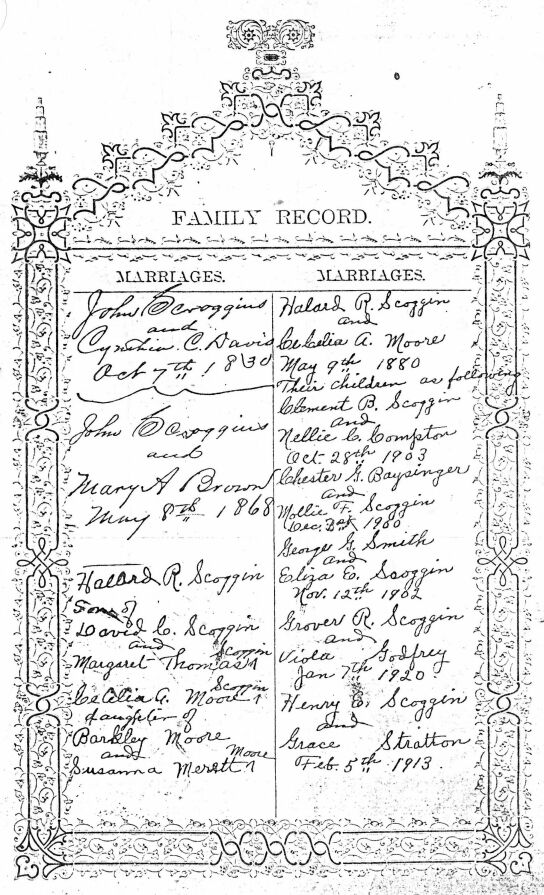 FAMILY RECORD.
MARRIAGES.
John Scroggins
and
Cynthia C. Davis
Oct 7th, 1830
John Scroggins
and
Mary A Brown
May 8th 1868
Halard R. Scoggin
Son of
David C. Scoggin
and
Margaret Thomas Scoggin
CeCelia A. Moore Scoggin
daughter of
Barkley Moore
and
Susanna Merritt Moore
MARRIAGES.
Halard R. Scoggin
and
CeCelia A. Moore
May 9th 1880
Their children as following
Clement B. Scoggin
and
Nellie C. Compton
Oct. 28th 1903
Chester G. Baysinger
and
Mollie F. Scoggin
Dec. 1900
George G. Smith
and
Eliza E. Scoggin
Nov. 12th 1902
Grover R. Scoggin
and
Viola Godfrey
Jan 7th 1920
Henry E. Scoggin
and
Grace Stratton
Feb. 5th 1913.